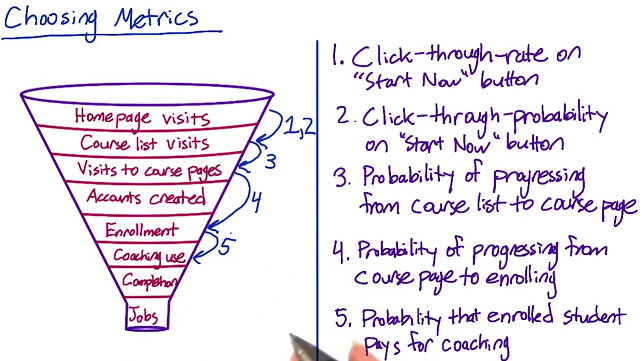 Choosing Metrics
Homepage visits
Course list visits
Visits to course pages
Accounts created
Enrollment
Coaching use
Completion
Jobs
1,2
3
4
5
1. Click-through-rate on
"Start Now" button
2. Click-through-probability
on "Start Now" button
3. Probability of progressing
from course list to course page
4. Probability of progressing from
course page to enrolling
5. Probability that enrolled student
pays for coaching